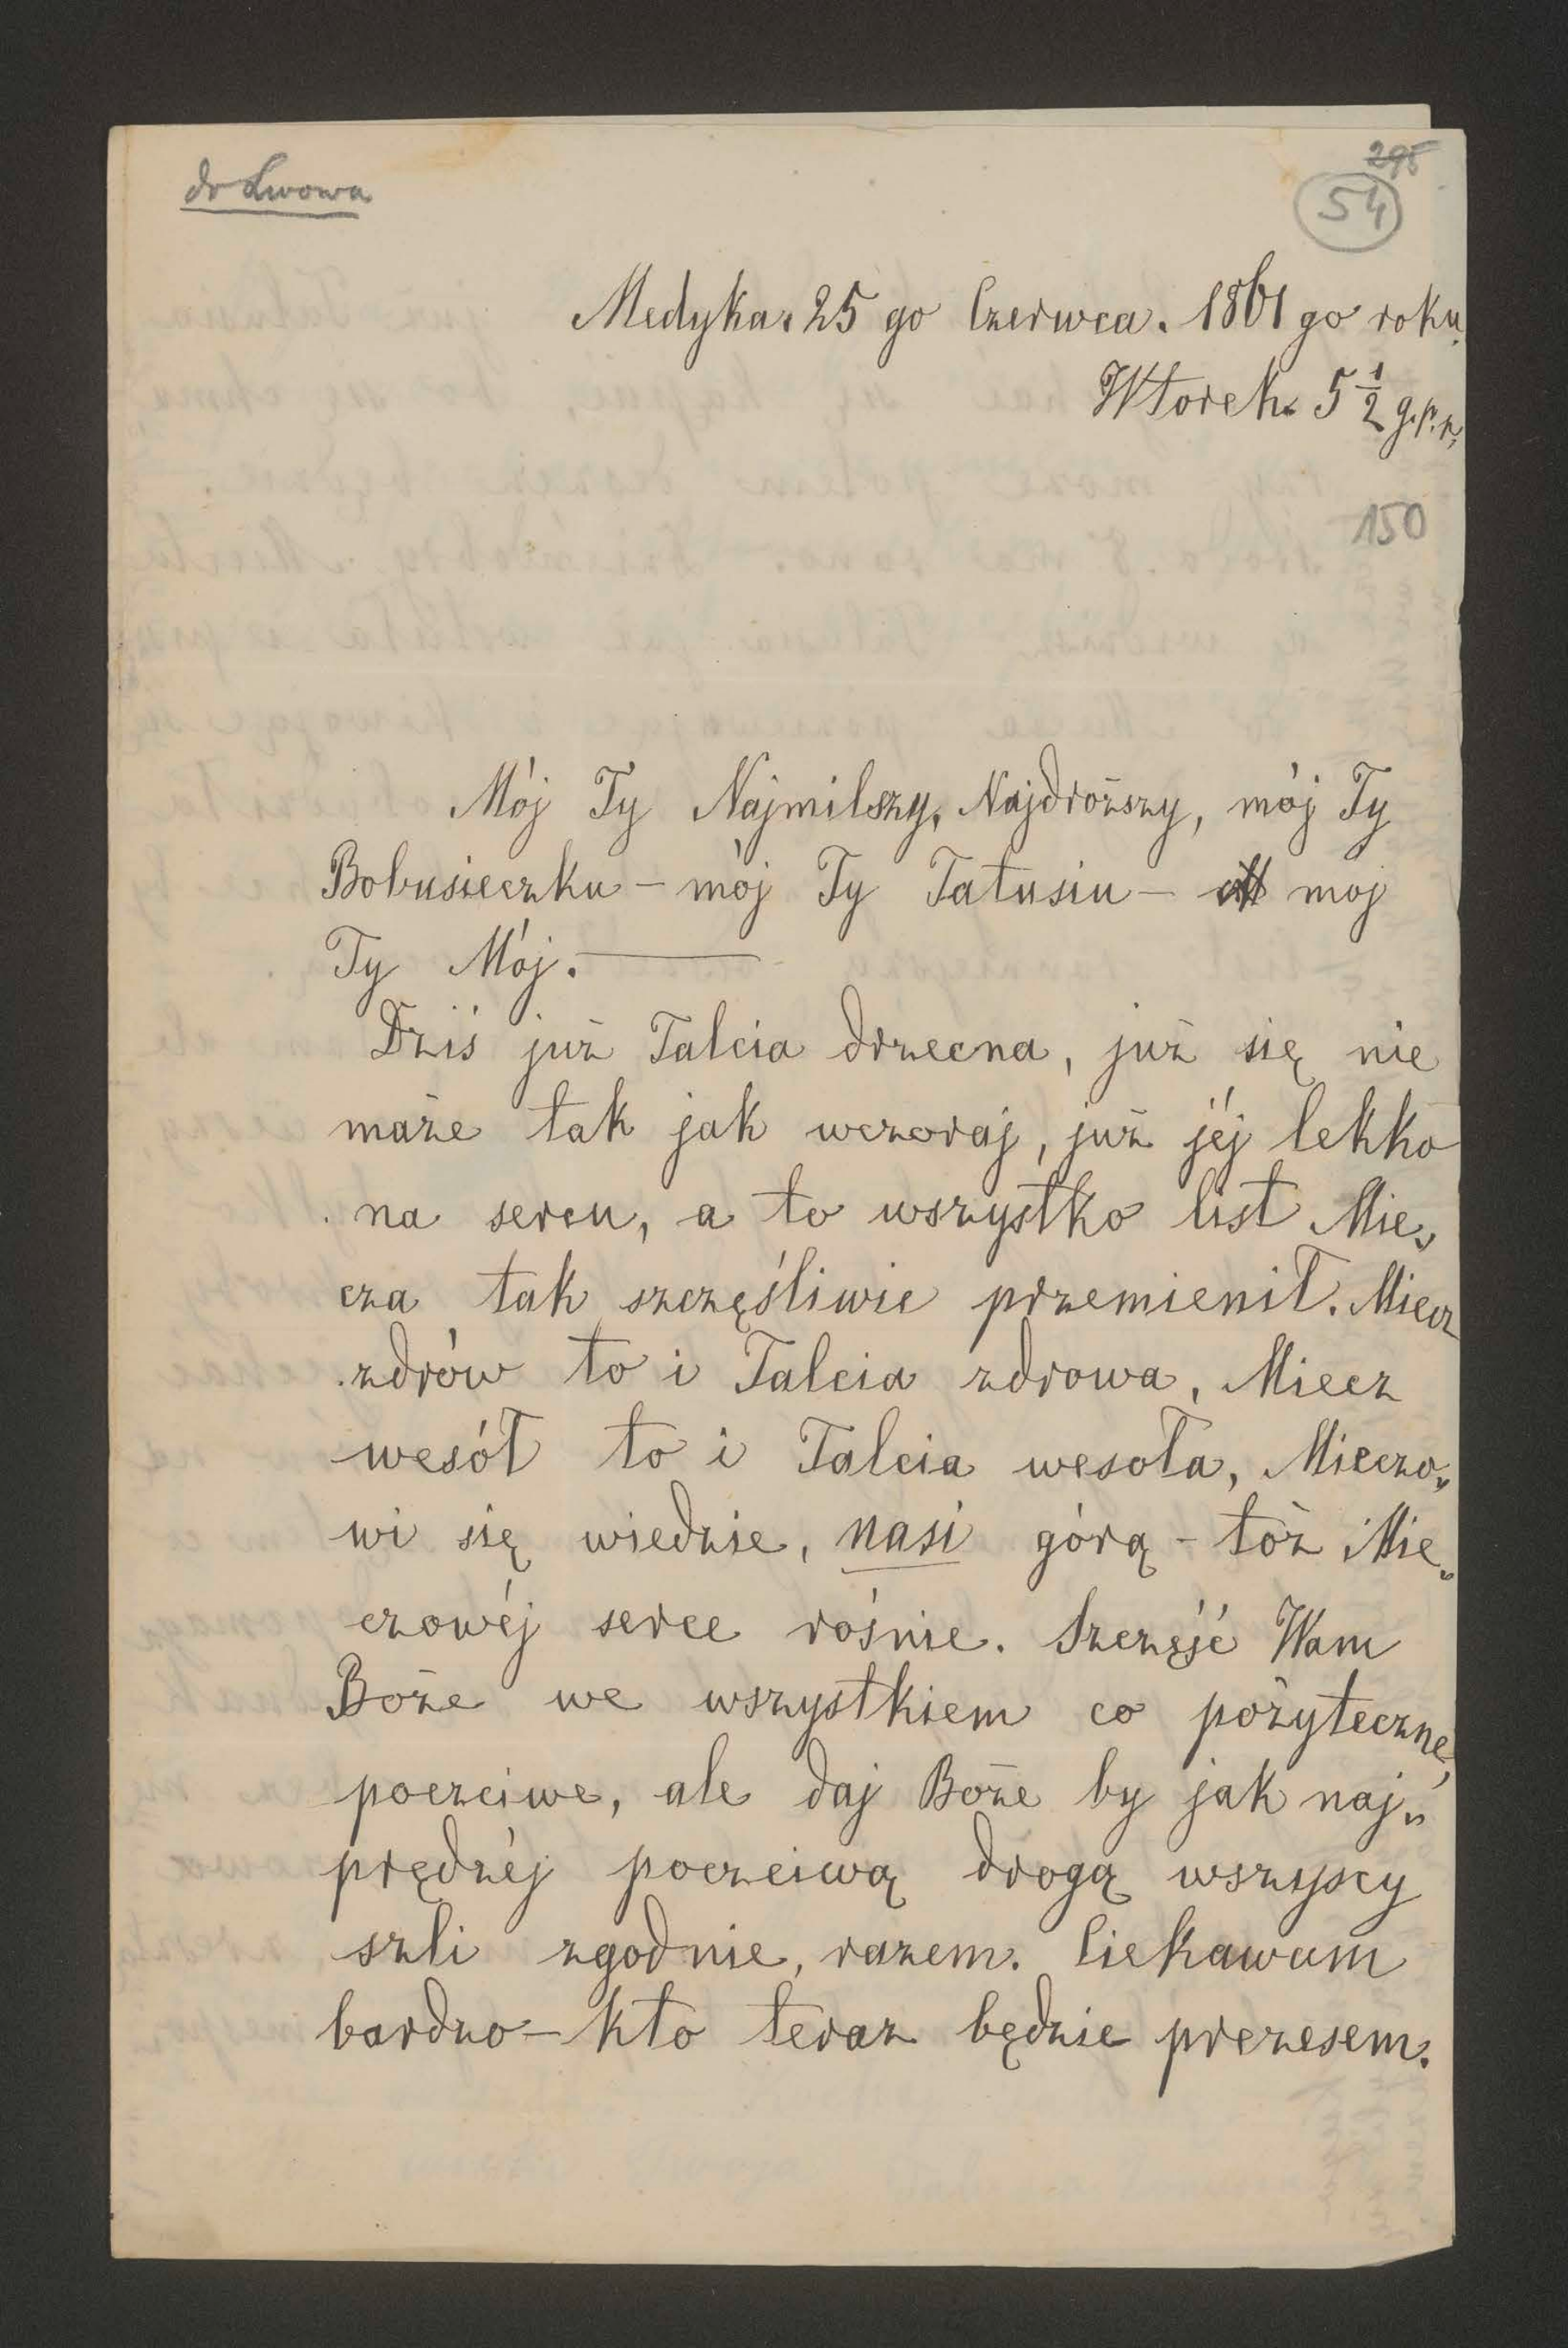 do Lwowa
295
54
Medyka. 25 go Czerwca. 1861 go roku.
Wtorek. 5 1/2 g. p. p.
150
Mój Ty Najmilszy, Najdroższy, mój Ty
Bobusieczku – mój Ty Tatusiu – mój
Ty Mój. —
Dziś już Talcia drzecna, już się nie
maże tak jak wczoraj, już jéj lekko
na sercu, a to wszystko list Mie„
cza tak szczęśliwie przemienił. Miecz
zdrów to i Talcia zdrowa, Miecz
wesół to i Talcia wesoła, Mieczo„
wi się wiedzie, nasi górą – tóż Mie„
czowéj serce rośnie. Szczęść Wam
Boże we wszystkiem co pożyteczne,
poczciwe, ale daj Boże by jak naj„
prędzéj poczciwą drogą wszyscy
szli zgodnie, razem. Ciekawam
bardzo – kto teraz będzie prezesem.